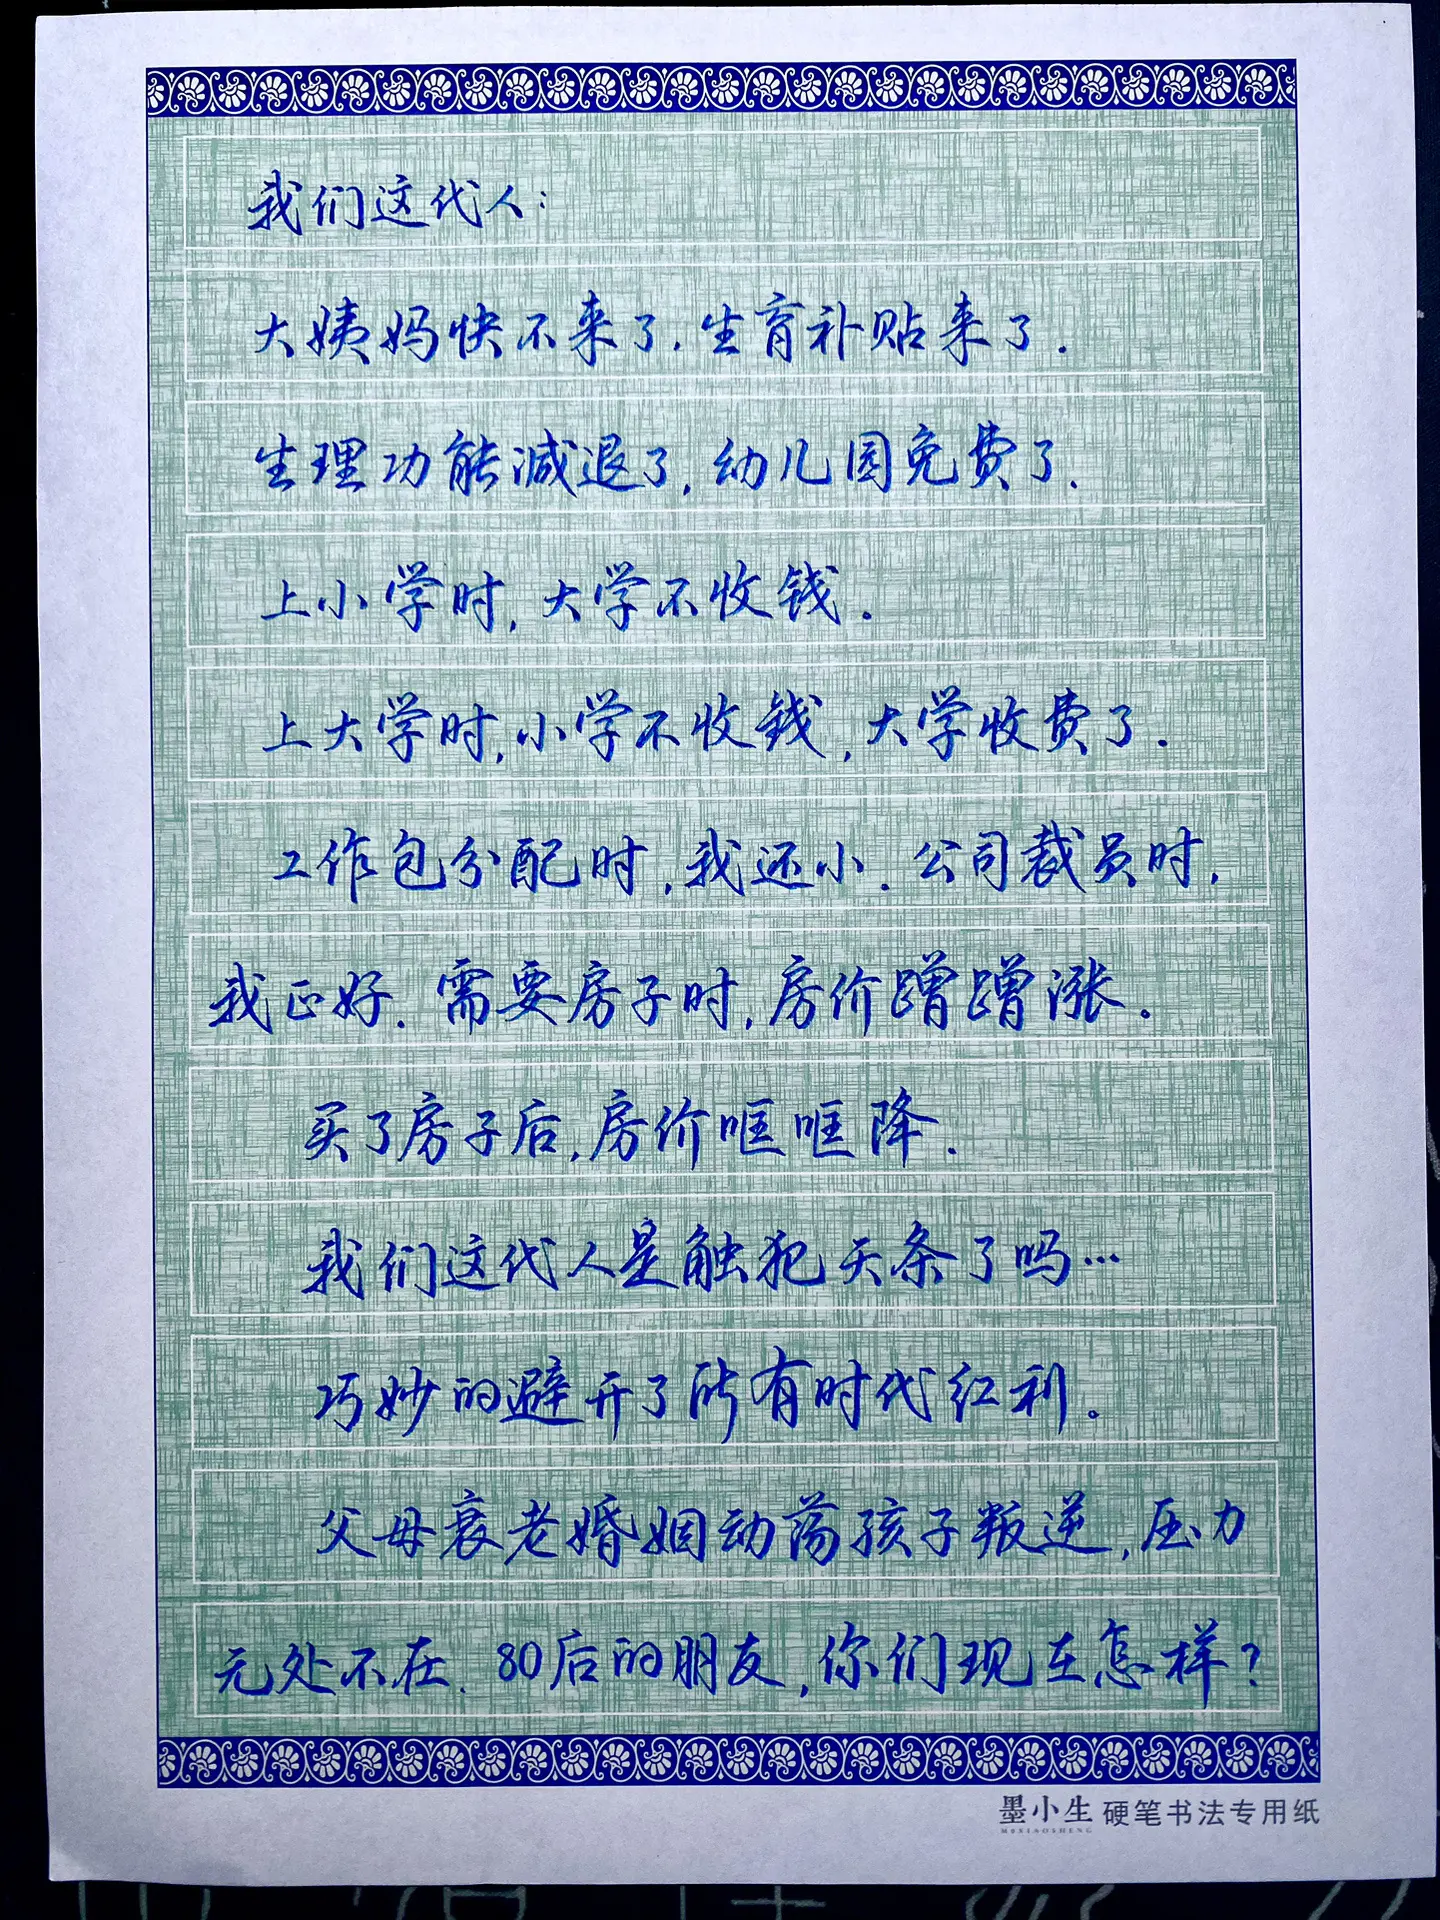 我们这代人：
大姨妈快不来了.生育补贴来了.
生理功能减退了,幼儿园免费了.
上小学时,大学不收钱.
上大学时,小学不收钱,大学收费了.
工作包分配时,我还小.公司裁员时,
我正好.需要房子时,房价蹭蹭涨.
买了房子后,房价哐哐降.
我们这代人是触犯天条了吗…
巧妙的避开了所有时代红利。
父母衰老婚姻动荡孩子叛逆,压力
无处不在.80后的朋友,你们现在怎样?
墨小生 硬笔书法专用纸
MOXIAOSHENG